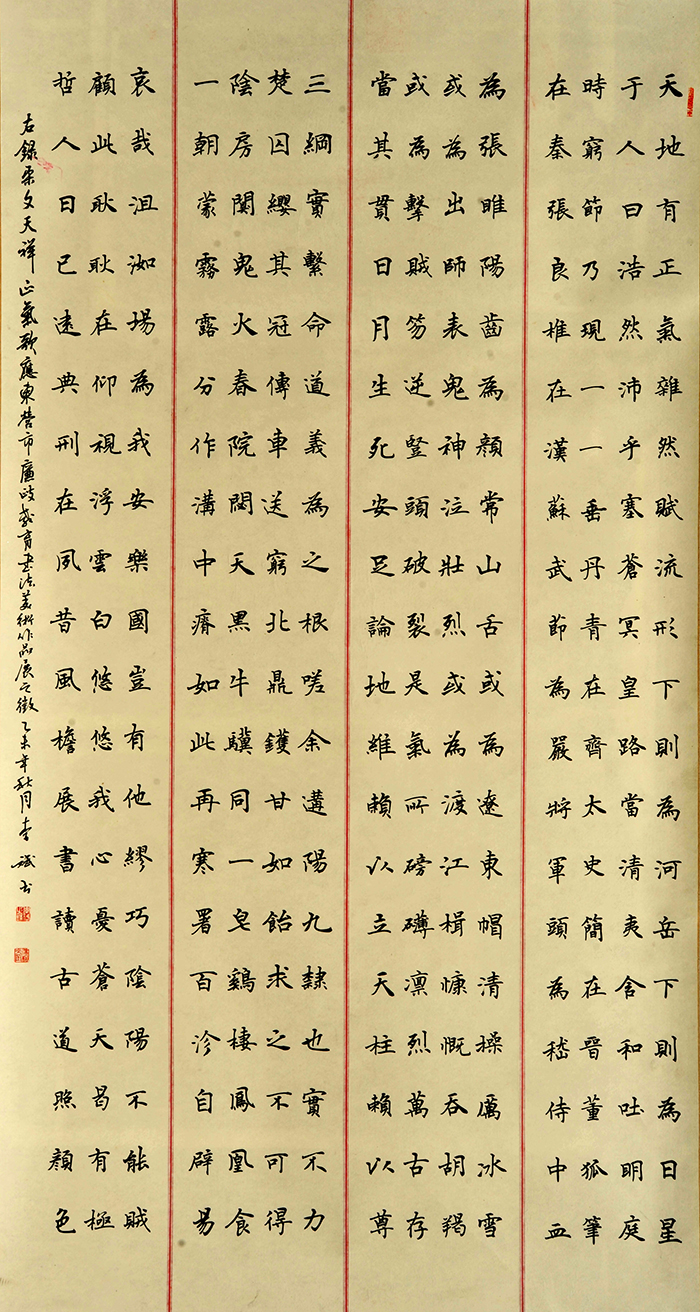 天地有正氣雜然賦流形下則為河岳下則為日星
于人曰浩然沛乎塞蒼冥皇路當清夷含和吐明庭
時窮節乃現一一垂丹青在齊太史簡在晉董狐筆
在秦張良椎在漢蘇武節為嚴將軍頭為嵇侍中血
為張睢陽齒為顏常山舌或為遼東帽清操厲冰雪
或為出師表鬼神泣壯烈或為渡江楫慷慨吞胡羯
或為擊賊笏逆豎頭破裂是氣所磅礴凛烈萬古存
當其貫日月生死安足論地維賴以立天柱賴以尊
三綱實繫命道義為之根嗟余遘陽九隸也實不力
楚囚纓其冠傳車送窮北鼎鑊甘如飴求之不可得
陰房闃鬼火春院閟天黑牛驥同一皂鷄棲鳳凰食
一朝蒙霧露分作溝中瘠如此再寒署百沴自辟易
哀哉沮洳場為我安樂國豈有他繆巧陰陽不能賊
顧此耿耿在仰視浮雲白悠悠我心憂蒼天曷有極
哲人日已遠典刑在夙昔風檐展書讀古道照顏色
右錄宋文天祥正氣歌應東營市廉政教育書法美術作品展之徵乙未年秋月李斌書